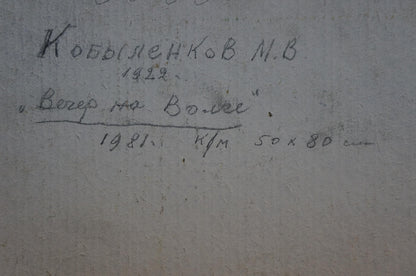 Кобыленков М.В
1922.
„Вечер на Волге".
1981. к/м 50 x 80 см